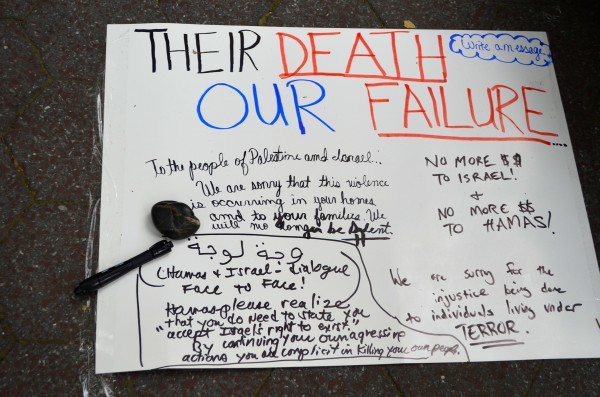 THEIR DEATH
OUR FAILURE....
Write a message
To the people of Palestine and Israel...
We are sorry that this violence
is occurring in your homes
and to your families. We
will no longer be silent.
NO MORE $$
TO ISRAEL!
&
NO MORE $$
TO HAMAS!
وجة لوجة
(Hamas & Israel - dialogue
FACE to FACE!
Hamas please realize
that you do need to state you
"accept Israel's right to exist."
By continuing your own agression
actions you are complicit in killing your own people.
We are sorry for the
injustice being done
to individuals living under
TERROR.